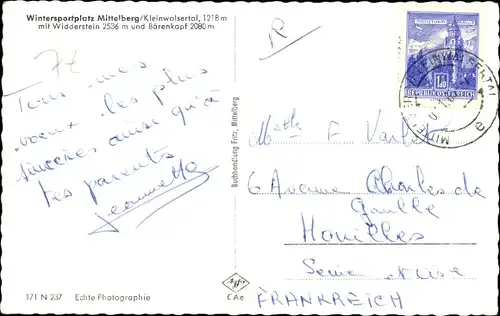 Wintersportplatz Mittelberg/Kleinwalsertal, 1218m
mit Widderstein 2536 m und Bärenkopf 2080m
Tous mes
vœux les plus
sincères ainsi qu'à
tes parents
Jeannette
171 N 237 Echte Photographie
Buchhandlung Fritz, Mittelberg
CAe
REPUBLIK ÖSTERREICH
Melle F
6 Avenue Charles de
Gaulle
Houilles
Seine et Oise
FRANKREICH